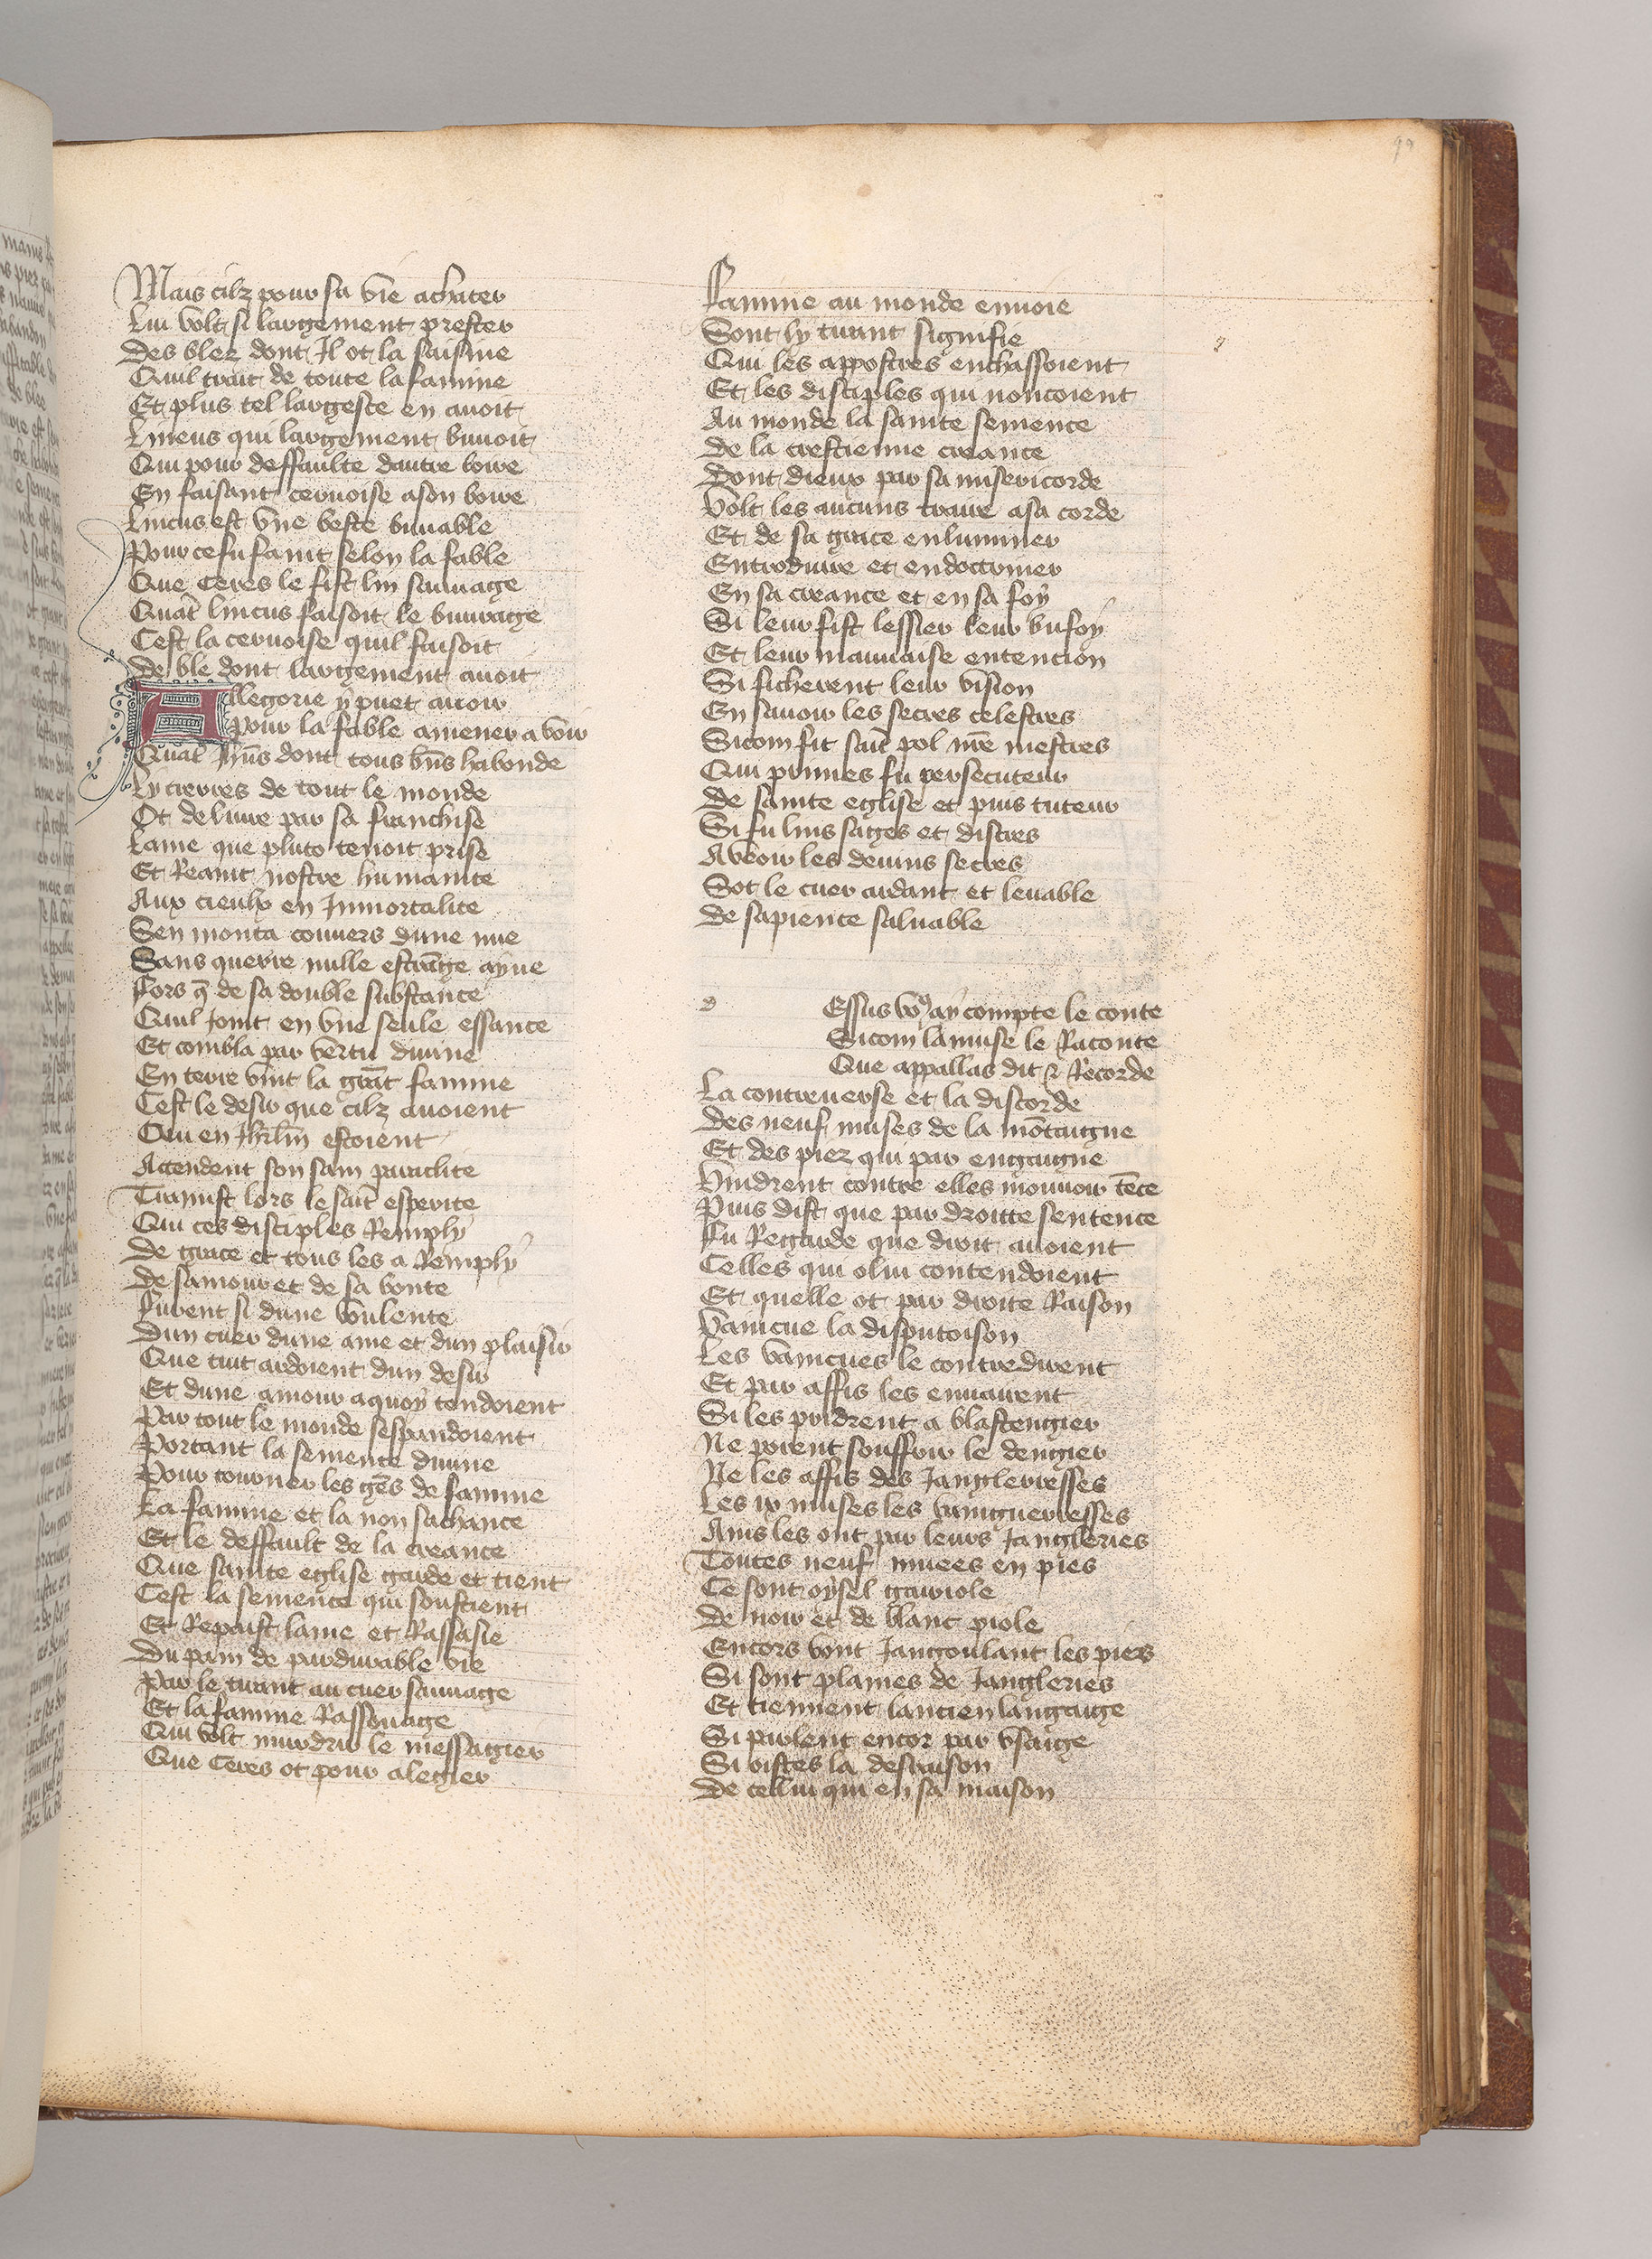 99
Mais cilz pour sa vie achater
Lui volt si largement prester
Des blez dont Il ot la saisine
Quil trait de toute la famine
Et plus tel largeste en avoit
Lincus qui largement buvoit
Qui pour deffaulte dautre boire
En faisant cervoise a son boire
Lincus est vne beste buvable
Pour ce fu faint selon la fable
Que Ceres le fist lin sauvage
Quāt lincus faisoit le buurage
Cest la cervoise quil faisoit
De ble dont largement avoit
Allegorie y puet avoir
Pour la fable amener a voir
Quāt Jhūs dont tous bn̄s habonde
Ly cierres de tout le monde
Ot delivre par sa franchise
Lame que pluto tenoit prise
Et Reaint nostre humanite
Aux cieulx en Jnmortalite
Sen monta couvers dune nue
Sans querre nulle estrāge ayue
Fors q̄ de sa double substance
Quil Joint en vne seule essance
Et combla par vertu divine
En terre vint la grāt famine
Cest le desir que cilz avoient
Qui en Jhrl̄m estoient
Attendent son sain paraclite
Tramist lors le sait̄ esperite
Qui ces disciples Remply
De grace et tous les a Remply
De samour et de sa bonte
Furent si dune voulente
Dun cuer dune ame et dun plaisir
Que tuit ardoient dun desir
Et dune amour a quoy tendoient
Par tout le monde sespandoient
Portant la semence divine
Pour tourner les gēs de famine
La famine et la non sachance
Et le deffault de la creance
Que sainte eglise garde et tient
Cest la semence qui soustient
Et Repaist lame et Rassasie
Du pain de pardurable vie
Par le tirant au cuer sauvage
Et la famine Rassouage
Qui volt murdrir le messagier
Que Ceres ot pour alegier
Famine au monde envoie
Sont ly tirant signifie
Qui les appostres enchassoient
Et les disciples qui noncoient
Au monde la sainte semence
De la crestienne creance
Dont dieux par sa misericorde
Volt les aucuns traire a sa corde
Et de sa grace enluminer
Entroduire et endoctriner
En sa creance et en sa foy
Si leur fist lessier leur bufoy
Et leur mauvaise entencion
Si ficherent leur vision
En savoir les secres celestres
Sicom fit sait̄ pol nr̄e mestres
Qui primes fu persecuteur
De sainte eglise et puis tuteur
Si fu lins sages et discres
A veoir les devins secres
Sot le cuer ardant et levable
De sapience saluable
d Essus vo9 ay compte le conte
Sicom la muse le Raconte
Que a pallas dit & Recorde
La contreuerse et la discorde
Des neuf muses de la mōtaigne
Et des piez qui par engaigne
Vindrent contre elles mouvoir tēce
Puis dist que par droitte sentence
Fu Regarde que droit avoient
Celles qui o lui contendoient
Et quelle ot par droite Raison
Vaincue la disputoison
Les vaincues le contredirent
Et par assis les envairent
Si les pridrent a blastengier
Ne porent souffrir le dengier
Ne les assis des Jangleresses
Les ix muses les vainguerresses
Ains les ont par leurs Jangleries
Toutes neuf muees en pies
Ce sont oysel gariole
De noir et de blanc piole
Encors vont Jangoulant les piers
Si sont plaines de Jangleries
Et tiennent lancien langaige
Si parlent encor par vsaige
Si oistes la desraison
De cellui qui en sa maison